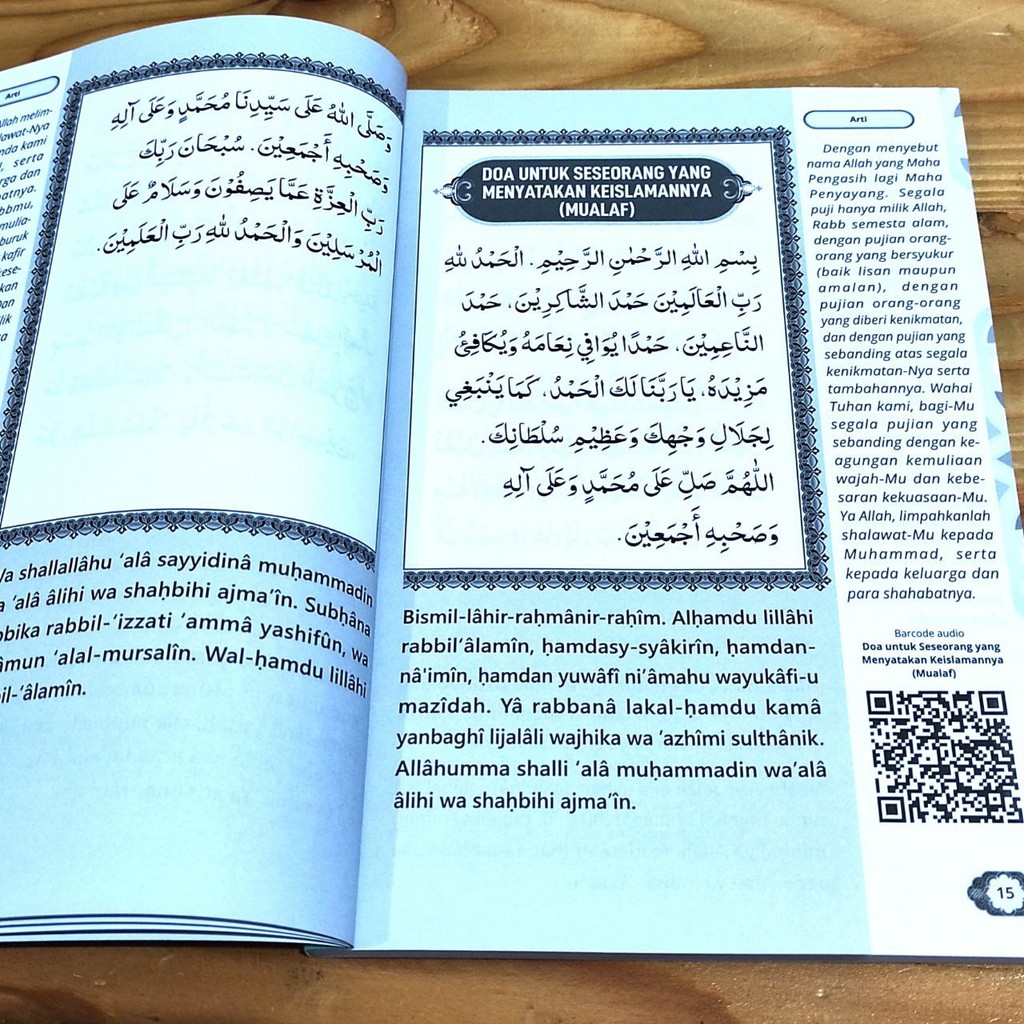 Arti
Allah melim-
nda kami
, serta
rga dan
atnya.
bbmu,
mulia-
buruk
kafir
وَصَلَّى اللّٰهُ عَلَى سَيِّدِنَا مُحَمَّدٍ وَعَلَى آلِهِ
وَصَحْبِهِ أَجْمَعِيْنَ. سُبْحَانَ رَبِّكَ
رَبِّ الْعِزَّةِ عَمَّا يَصِفُوْنَ وَسَلَامٌ عَلَى
الْمُرْسَلِيْنَ وَالْحَمْدُ لِلّٰهِ رَبِّ الْعَلَمِيْنَ.
a shallallâhu ‘alâ sayyidinâ muḥammadin
a ‘alâ âlihi wa shaḥbihi ajma’în. Subḥâna
bbika rabbil-‘izzati ‘ammâ yashifûn, wa
âmun ‘alal-mursalîn. Wal-ḥamdu lillâhi
bil-‘âlamîn.
DOA UNTUK SESEORANG YANG
MENYATAKAN KEISLAMANNYA
(MUALAF)
بِسْمِ اللّٰهِ الرَّحْمٰنِ الرَّحِيْمِ. الْحَمْدُ لِلّٰهِ
رَبِّ الْعَالَمِيْنَ حَمْدَ الشَّاكِرِيْنَ، حَمْدَ
النَّاعِمِيْنَ، حَمْدًا يُوَافِي نِعَامَهُ وَيُكَافِئُ
مَزِيْدَهُ، يَا رَبَّنَا لَكَ الْحَمْدُ، كَمَا يَنْبَغِي
لِجَلَالِ وَجْهِكَ وَعَظِيْمِ سُلْطَانِكَ.
اللّٰهُمَّ صَلِّ عَلَى مُحَمَّدٍ وَعَلَى آلِهِ
وَصَحْبِهِ أَجْمَعِيْنَ.
Bismil-lâhir-raḥmânir-raḥîm. Alḥamdu lillâhi
rabbil‘âlamîn, ḥamdasy-syâkirîn, ḥamdan-
nâ'imîn, ḥamdan yuwâfî ni’âmahu wayukâfi-u
mazîdah. Yâ rabbanâ lakal-ḥamdu kamâ
yanbaghî lijalâli wajhika wa ‘azhîmi sulthânik.
Allâhumma shalli ‘alâ muḥammadin wa‘alâ
âlihi wa shaḥbihi ajma’în.
Arti
Dengan menyebut
nama Allah yang Maha
Pengasih lagi Maha
Penyayang. Segala
puji hanya milik Allah,
Rabb semesta alam,
dengan pujian orang-
orang yang bersyukur
(baik lisan maupun
amalan), dengan
pujian orang-orang
yang diberi kenikmatan,
dan dengan pujian yang
sebanding atas segala
kenikmatan-Nya serta
tambahannya. Wahai
Tuhan kami, bagi-Mu
segala pujian yang
sebanding dengan ke-
agungan kemuliaan
wajah-Mu dan kebe-
saran kekuasaan-Mu.
Ya Allah, limpahkanlah
shalawat-Mu kepada
Muhammad, serta
kepada keluarga dan
para shahabatnya.
Barcode audio
Doa untuk Seseorang yang
Menyatakan Keislamannya
(Mualaf)
15